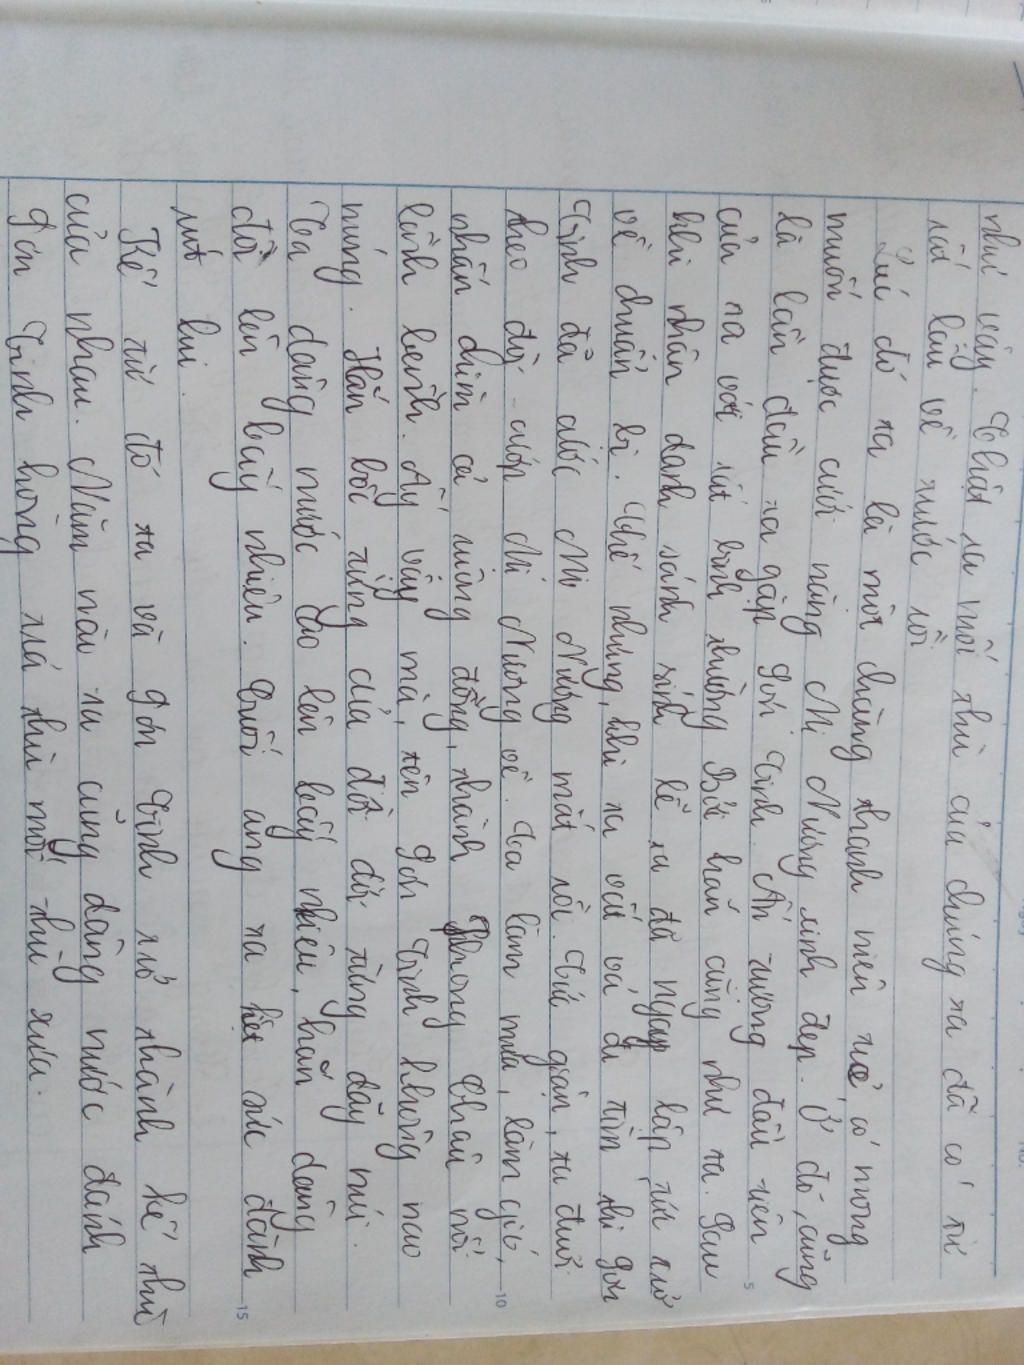 như vậy. Thật ra mối thù của chúng ta đã có từ
rất lâu về trước rồi
Lúc đó ta là một chàng thanh niên trẻ, có mong
muốn được cưới nàng Mị Nương xinh đẹp. Ở đó, cũng
là lần đầu ta gặp Sơn Tinh. Ấn tượng đầu tiên
của ta với rất bình thường Bởi hắn cũng như ta. Sau
khi nhận danh sách sính lễ ta đã ngay lập tức trở
về chuẩn bị. Thế nhưng, khi ta vất vả đi tìm thì Sơn
Tinh đã rước Mị Nương mất rồi. Tức giận, ta đuổi
theo đòi cướp Mị Nương về. Ta làm mưa, làm gió,
nhấn chìm cả ruộng đồng, thành Phong Châu nổi
lềnh bềnh. Ấy vậy mà, tên Sơn Tinh không nao
núng. Hắn bốc từng quả đồi dời từng dãy núi.
Ta dâng nước cao lên bấy nhiêu, hắn dâng
đồi lên bấy nhiêu. Cuối cùng ta kiệt sức đành
rút lui.
Kể từ đó ta và Sơn Tinh trở thành kẻ thù
của nhau. Năm nào ta cũng dâng nước đánh
Sơn Tinh hòng trả thù mối thù xưa.
5
10
15